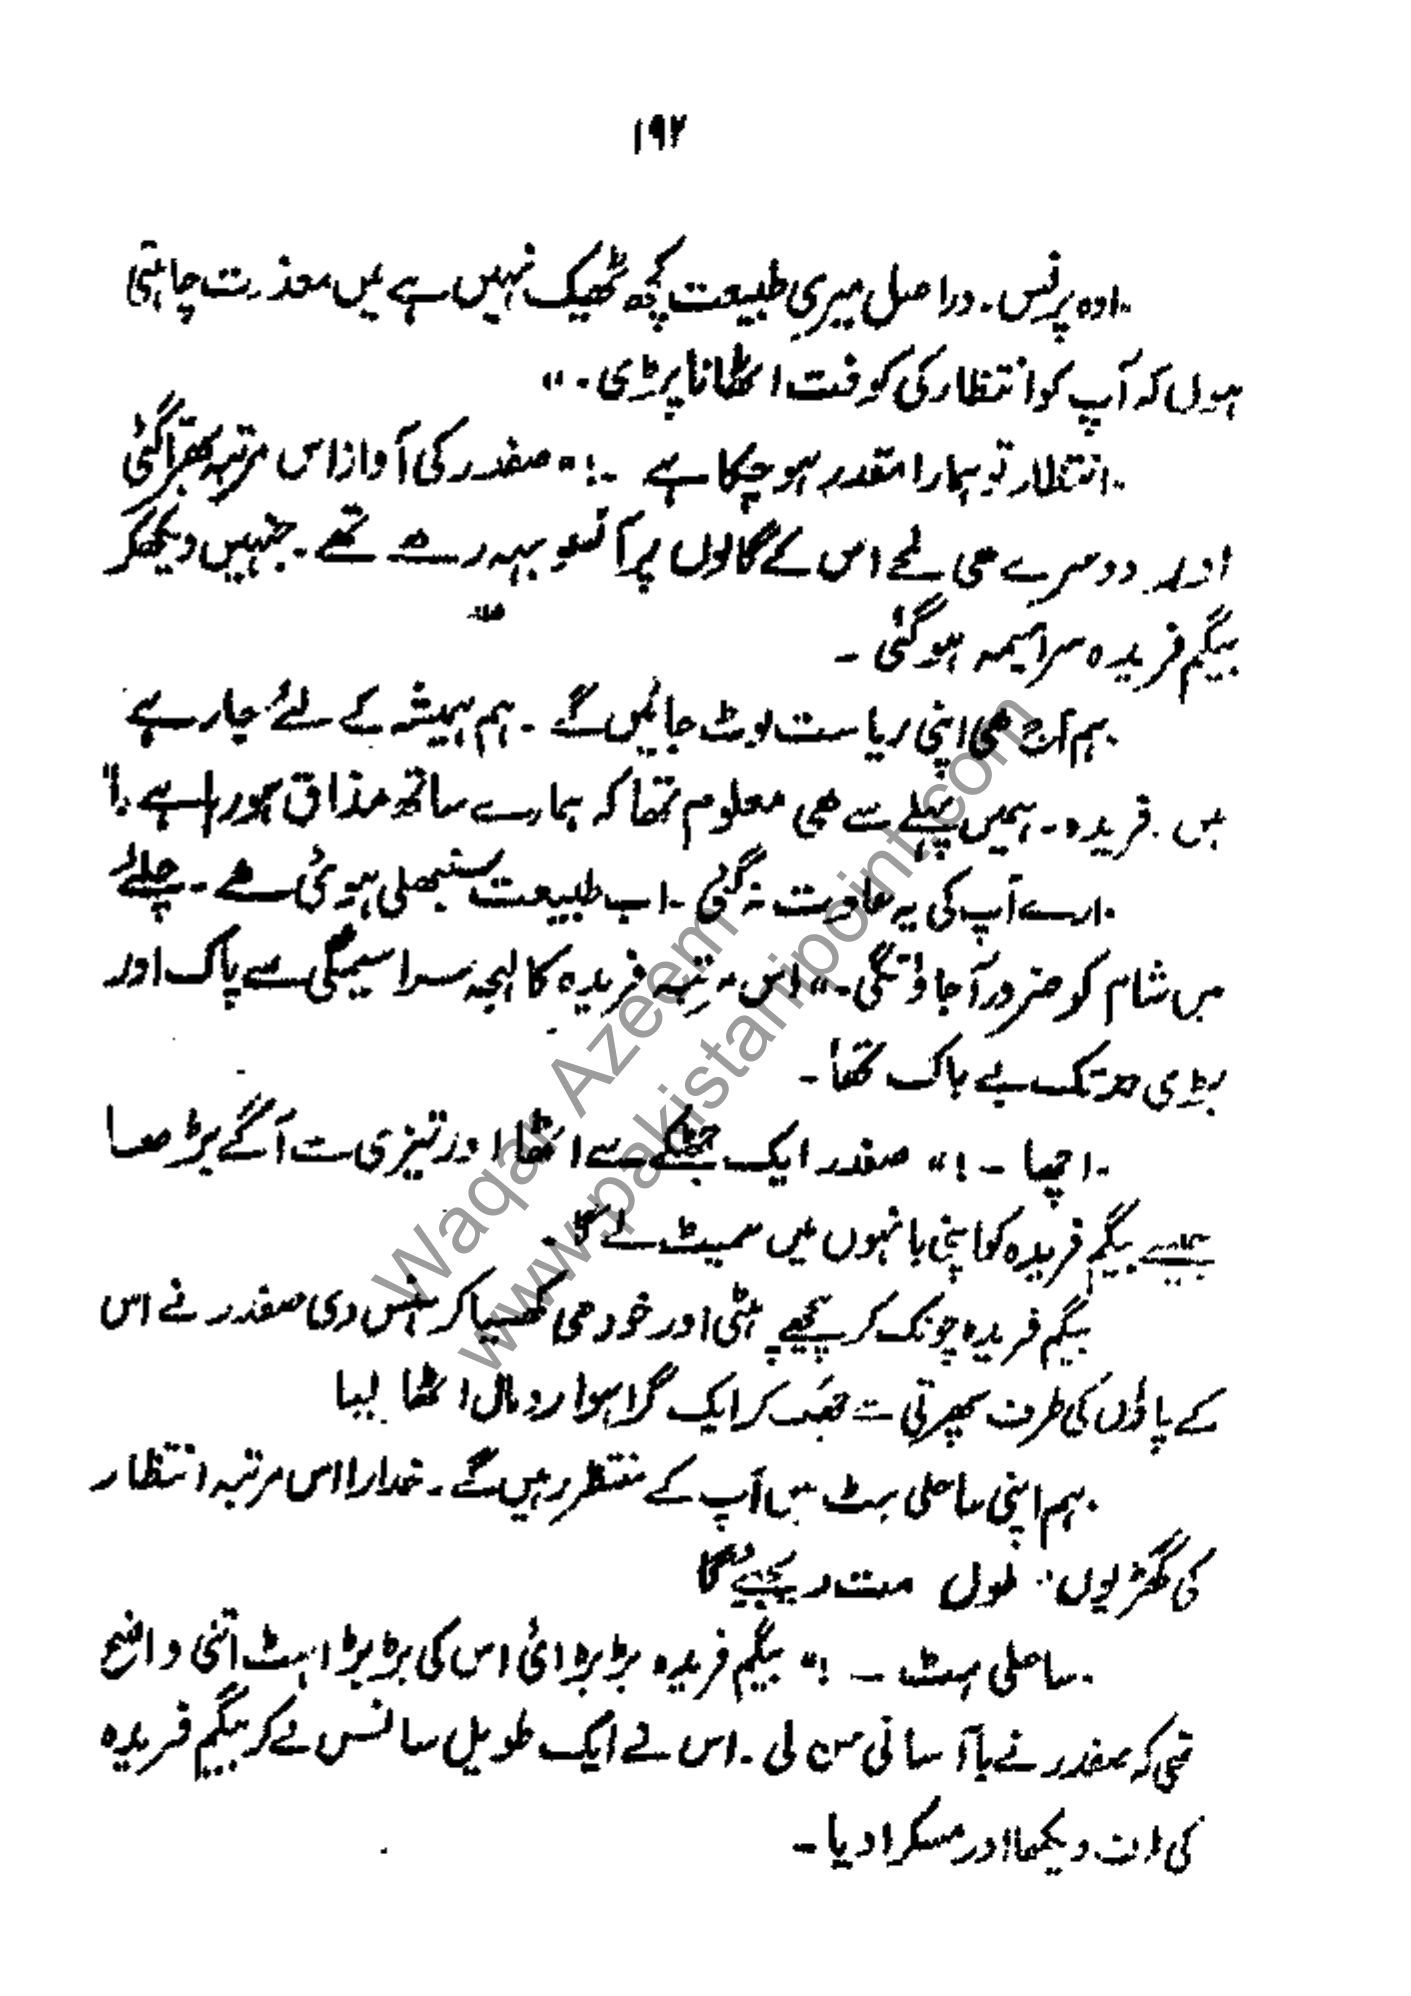 ۱۹۲
"اوہ پرنس۔ دراصل میری طبیعت کچھ ٹھیک نہیں ہے میں معذرت چاہتی
ہوں کہ آپ کو انتظار کی کوفت اٹھانا پڑی۔"
"انتظار تو ہمارا مقدر ہو چکا ہے ۔!" صفدر کی آواز اس مرتبہ بھرّا گئی
اور دوسرے ھی لمحے اس کے گالوں پر آنسو بہہ رھے تھے۔ جنہیں دیکھکر
بیگم فریدہ سراسیمہ ہوگئی ۔
"ہم آج ھی اپنی ریاست لوٹ جائیں گے ۔ ہم ہمیشہ کے لئے جا رہے
ہیں۔ فریدہ۔ ہمیں پہلے سے ھی معلوم تھا کہ ہمارے ساتھ مذاق ہو رہا ہے ۔"
"ارے آپ کی یہ عادت نہ گئی ۔ اب طبیعت سنبھلی ہوئی ھے ۔ چلئے
میں شام کو ضرور آجاؤنگی۔" اس مرتبہ فریدہ کا لہجہ سراسیمگی سے پاک اور
بڑی حد تک بے باک تھا ۔
"اچھا ۔!" صفدر ایک جھٹکے سے اٹھا اور تیزی سے آگے بڑھا
جیسے بیگم فریدہ کو اپنی بانہوں میں سمیٹ لے گا۔
بیگم فریدہ چونک کر پیچھے ہٹی اور خود ھی کھسیا کر ہنس دی صفدر نے اس
کے پاؤں کی طرف پھرتی سے جھک کر ایک گرا ہوا رومال اٹھا لیا
"ہم اپنی ساحلی ہٹ میں آپ کے منتظر رہیں گے۔ خدارا اس مرتبہ انتظار
کی گھڑیوں طول مت دیجیئے گا
"ساحلی ہٹ ۔!" بیگم فریدہ بڑبڑائی اس کی بڑبڑاہٹ اتنی واضح
تھی کہ صفدر نے باآسانی سن لی ۔ اس نے ایک طویل سانس لے کر بیگم فریدہ
کی طرف دیکھا اور مسکرا دیا ۔
Waqar Azeem
www.pakistanipoint.com